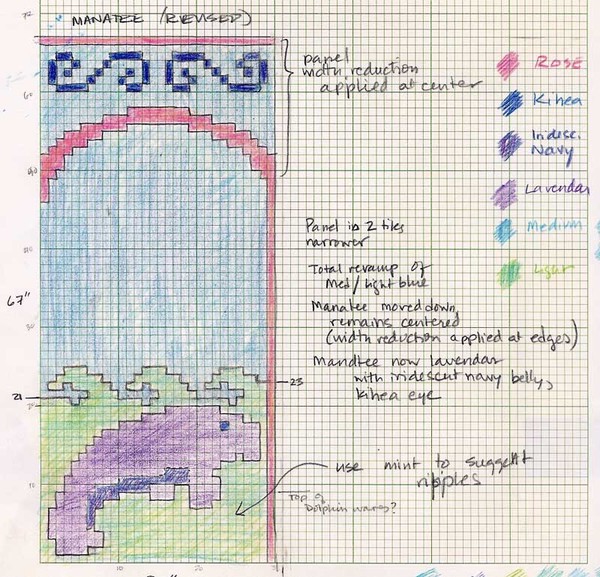 MANATEE (REVISED)
panel
width reduction
applied at center
ROSE
Kihea
Iridesc.
Navy
Lavendar
Medium
Light
Panel is 2 tiles
narrower
Total revamp of
Med/light blue
Manatee moved down,
remains centered
(width reduction applied at edges)
Manatee now lavendar
with iridescent navy belly,
kihea eye
67"
23
21
use mint to suggest
ripples
Top of
Dolphin waves?